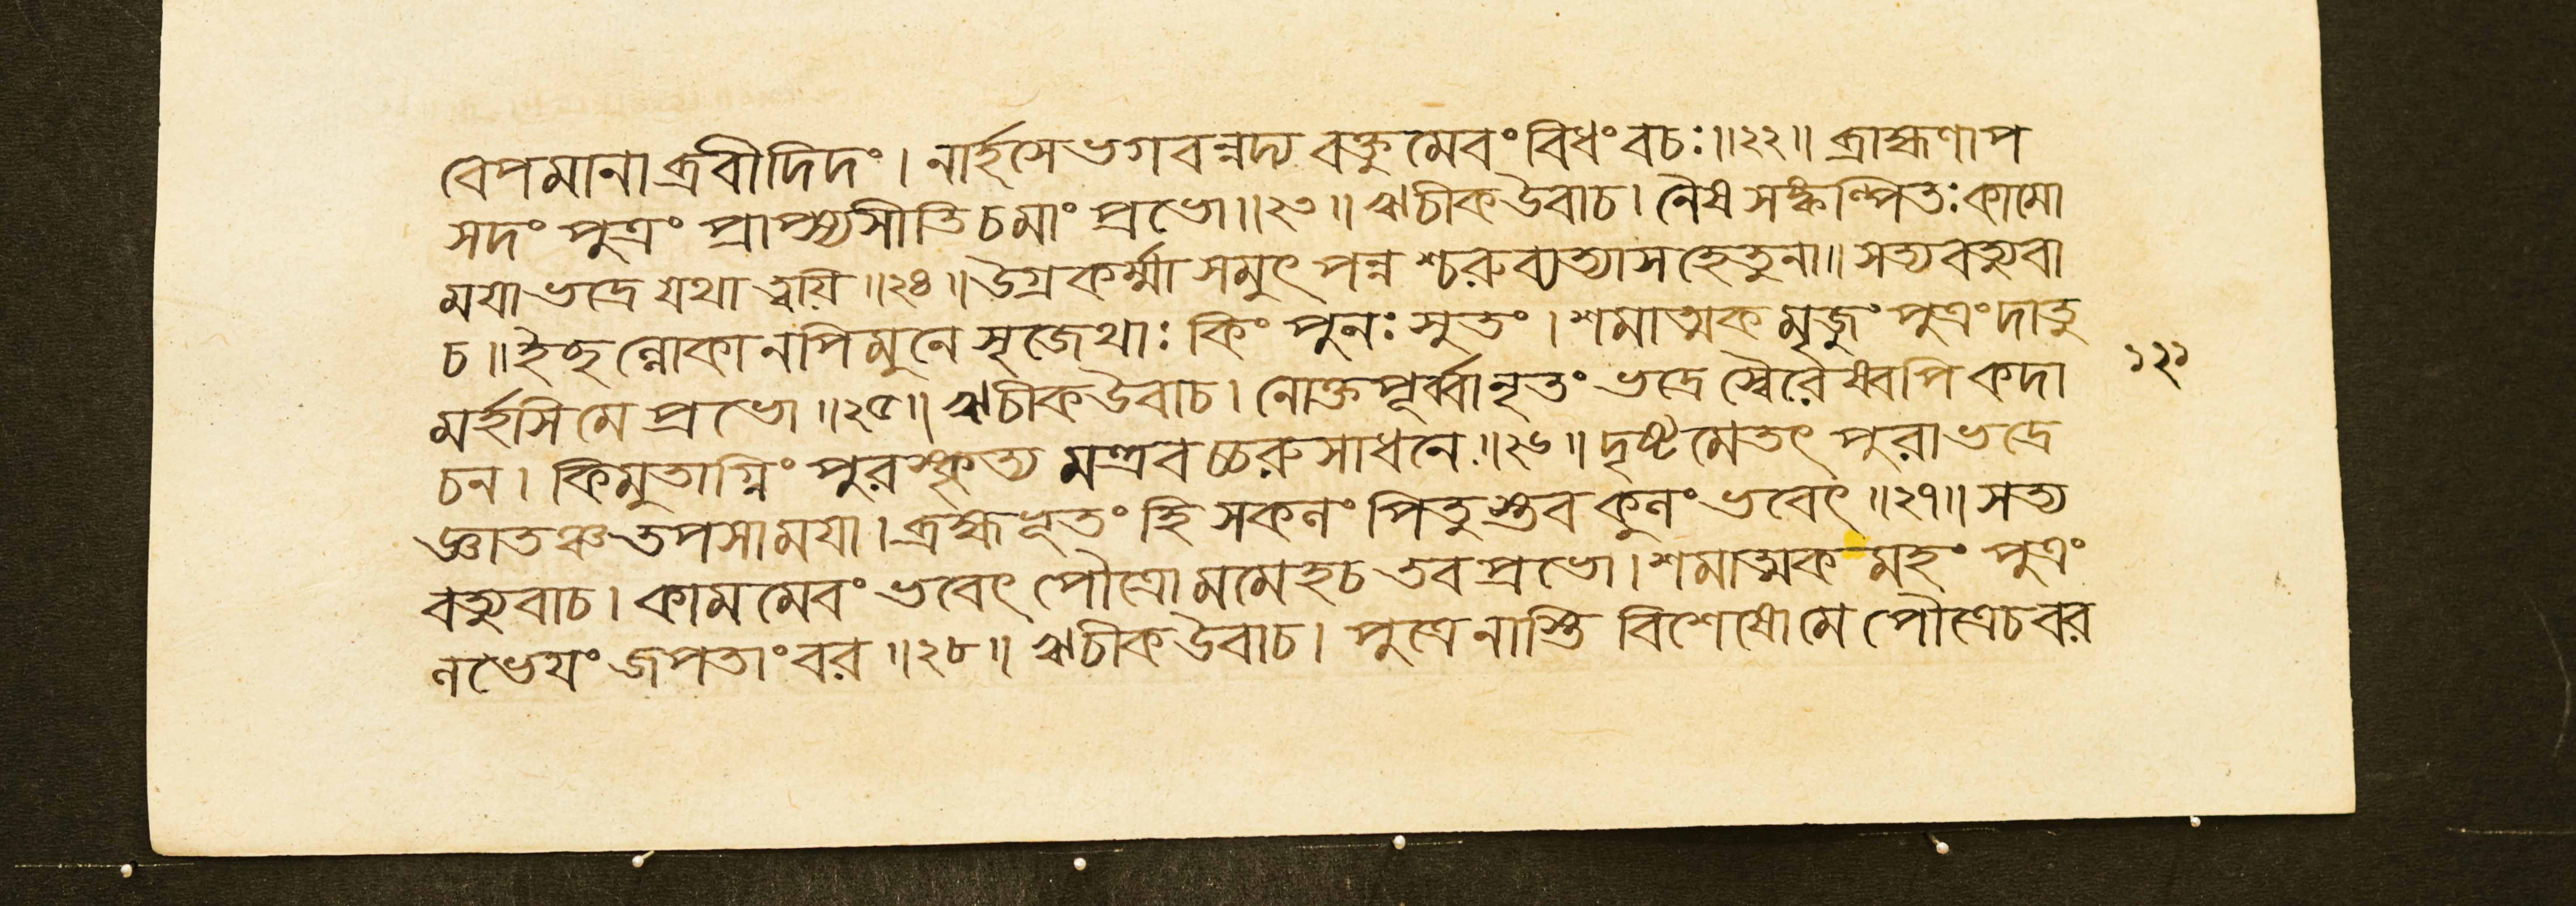 বেপমানাব্রবীদিদং। নার্হসে ভগবন্নদ্য বক্তুমেবং বিধং বচঃ॥২২॥ ব্রাহ্মণাপ
সদং পুত্রং প্রাপ্স্যসীতি চ মাং প্রভো॥২৩॥ ঋচীক উবাচ। নৈষ সঙ্কল্পিতঃ কামো
ময়া ভদ্রে যথা ত্বয়ি॥২৪॥ উগ্রকর্ম্মা সমুৎপন্নশ্চরুব্যত্যাসহেতুনা॥ সত্যবত্যুবা
চ॥ ইচ্ছল্লোকানপি মুনে সৃজেথাঃ কিং পুনঃ সুতং। শমাত্মকমৃজুং পুত্রং দাতু
মর্হসি মে প্রভো॥২৫॥ ঋচীক উবাচ। নোক্তপূর্ব্বানৃতং ভদ্রে স্বৈরেষ্বপি কদা
চন। কিমুতাগ্নিং পুরস্কৃত্য মন্ত্রবচ্চরুসাধনে॥২৬॥ দৃষ্টমেতৎ পুরা ভদ্রে
জ্ঞাতঞ্চ তপসা ময়া। ব্রহ্মভূতং হি সকলং পিতুস্তব কুলং ভবেৎ॥২৭॥ সত্য
বত্যুবাচ। কামমেবং ভবেৎ পৌত্রো মমেহ চ তব প্রভো। শমাত্মকমহং পুত্রং
লভেয়ং জপতাংবর॥২৮॥ ঋচীক উবাচ। পুত্রে নাস্তি বিশেষো মে পৌত্রে চ বর
১২১